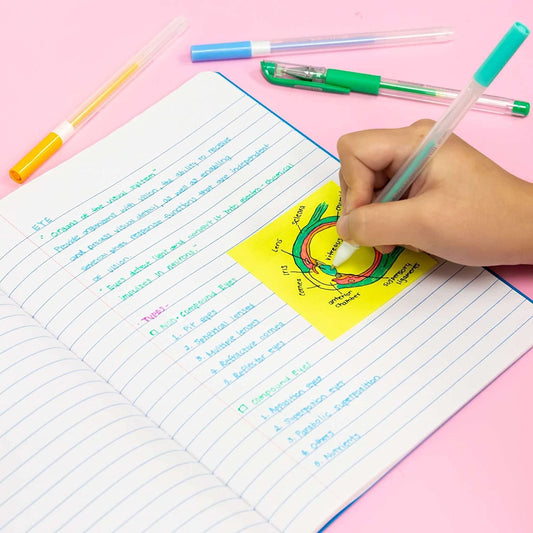 EYE
" Organs of the visual system"
Provide organisms with vision, the ability to receive
and process visual detail, as well as enabling
several photo response functions that are independent
of vision.
" Eyes detect light and convert it into electro - chemical
impulses in neurons."
TYPES:
Non-compound Eyes
1. Pit eyes
2. Spherical lensed
3. Multiple lenses
4. Refractive cornea
5. Reflector eyes
Compound Eyes
1. Apposition eyes
2. Superposition eyes
3. Parabolic superposition
4. Others
5. Nutrients
Sclera
Lens
Iris
Cornea
anterior
chamber
suspensory
ligaments